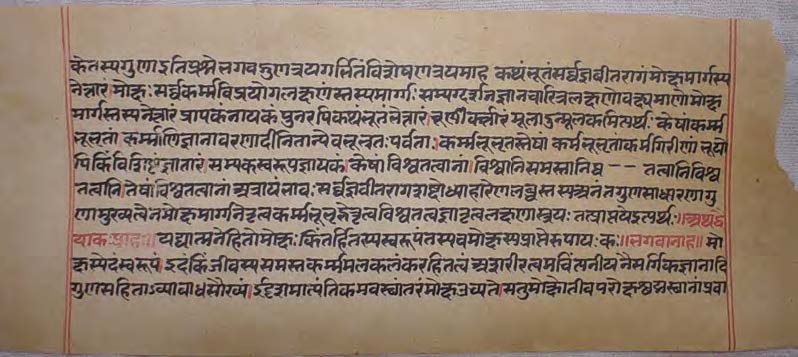 केतस्यगुणाइतिप्रश्नेभगवद्गुणत्रयगर्भितंविशेषणत्रयमाह कथंभूतंसर्वज्ञवीतरागंमोक्षमार्गस्य
नेत्तारंमोक्षः सर्वकर्म्मविप्रयोगलक्षणंस्तस्यमार्गः सम्यग्दर्शनज्ञानचारित्रलक्षणोवक्ष्यमाणोमोक्ष
मार्गस्तस्यनेत्तारंप्रापकंनायकं पुनरपिकथंभूतंभेत्तारं चूर्णीकर्त्तारंमूलाउन्मूलकमित्यर्थः केषांकर्म्म
भूभृतां कर्म्माणिज्ञानावरणादीनितान्येवभूभृतः पर्वताः कर्म्मभूभृतस्तेषां कर्मभूभृतांकर्मगिरीणां भूयो
पिकिंविशिष्टंज्ञातारं सम्यक्स्वरूपज्ञायकं केषांविश्वतत्वानां विश्वानिसमस्तानिच -- तत्वानिविश्व
तत्वानि तेषांविश्वतत्वानां अत्रायंभावः सर्वज्ञवीतरागशब्दोध्याहारेणलब्धस्तस्यअनंतगुणसाधारणगु
णामुख्यत्वेनमोक्षमार्गनेतृत्वकर्म्मभूभृद्भेतृत्वविश्वतत्वज्ञातृत्वलक्षणास्त्रयः तत्प्राप्तयेइत्यर्थः॥अथद्वै
याकःप्राहः॥ यद्यात्मनेहितोमोक्षः किंतर्हितस्यस्वरूपंतस्यवमोक्षस्यप्राप्तेरुपायःकः॥भगवानाह॥ मो
क्षस्येदंस्वरूपं इदंकिंजीवस्यसमस्तकर्म्ममलकलंकरहितत्वं अशरीरत्वमचिंत्यनीयनैसर्गिकज्ञानादि
गुणसहिताऽव्याबाधसौख्यं ईदृशमात्यंतिकमवस्थांतरंमोक्षउच्यते